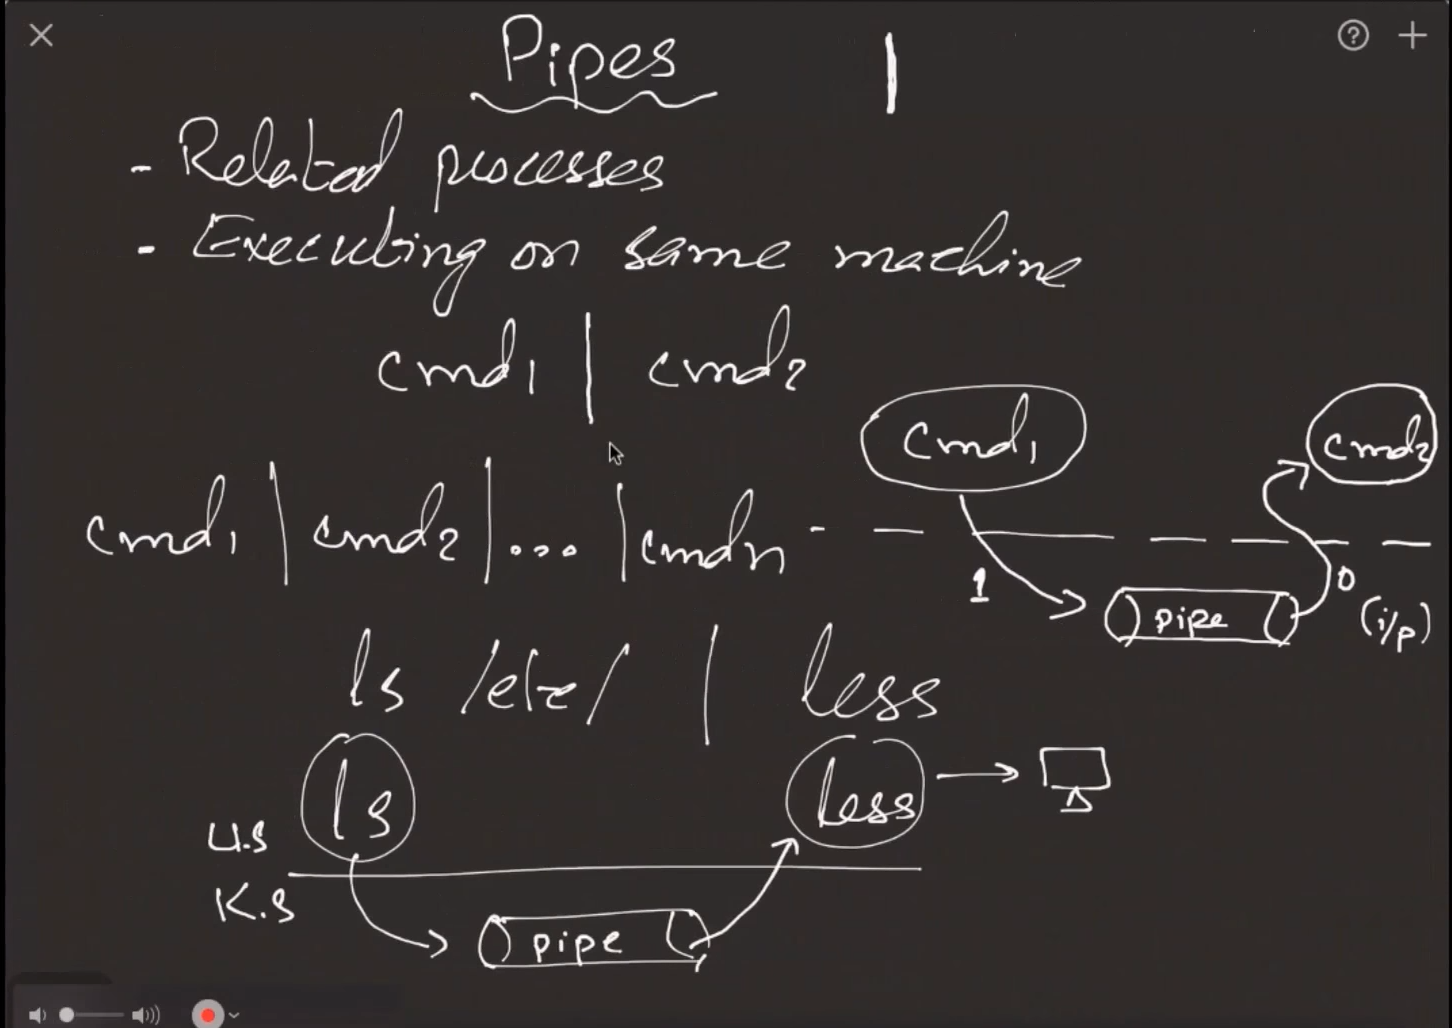 Pipes |
- Related processes
- Executing on same machine
cmd1 | cmd2
cmd1 | cmd2 | ... | cmdn
cmd1
cmd2
1
pipe
0
(i/p)
ls /etc/ | less
ls
less
U.S
K.S
pipe